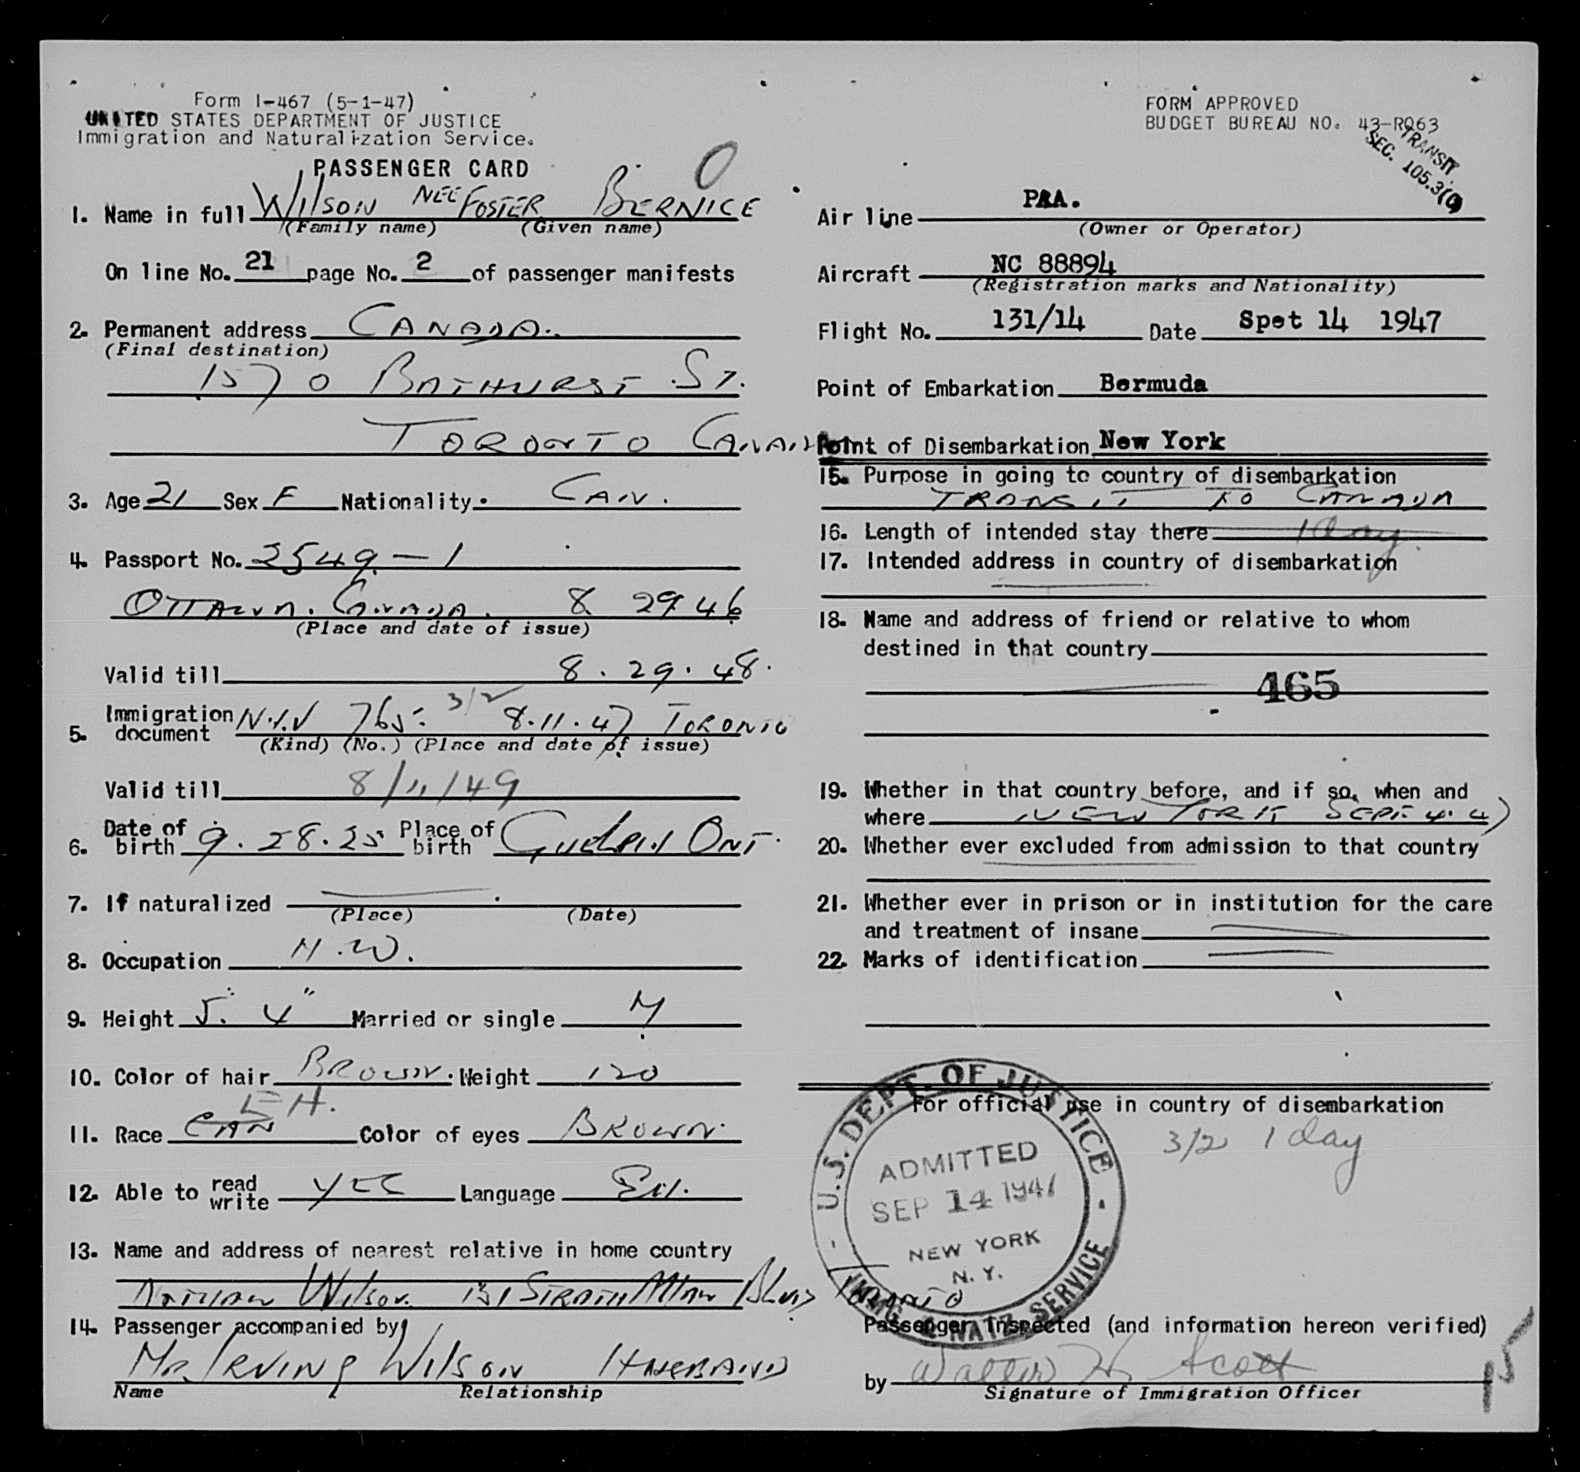 Form I-467 (5-1-47)
UNITED STATES DEPARTMENT OF JUSTICE
Immigration and Naturalization Service.
PASSENGER CARD
0
1. Name in full WILSON NEE FOSTER BERNICE
(Family name) (Given name)
On line No. 21 page No. 2 of passenger manifests
2. Permanent address CANADA.
(Final destination)
1570 BATHURST ST.
TORONTO CANADA
3. Age 21 Sex F Nationality. CAN.
4. Passport No. 2549-1
OTTAWA. CANADA. 8 29 46
(Place and date of issue)
Valid till 8. 29. 48.
5. Immigration document N.I.V 765. 3/2 8.11.47 TORONTO
(Kind) (No.) (Place and date of issue)
Valid till 8/11/49
6. Date of birth 9.28.25 Place of birth Guelph ONT.
7. If naturalized
(Place) (Date)
8. Occupation H.W.
9. Height 5' 4" Married or single M
10. Color of hair BROWN. Weight 120
EH.
11. Race CAN Color of eyes BROWN.
12. Able to read write YES Language EN.
13. Name and address of nearest relative in home country
NATHAN WILSON. 131 STRATHALLAN BLVD TORONTO
14. Passenger accompanied by
MR. IRVING WILSON HUSBAND
Name Relationship
FORM APPROVED
BUDGET BUREAU NO. 43-R063
TRANSIT
SEC. 105.3(
Air line PAA.
(Owner or Operator)
Aircraft NC 88894
(Registration marks and Nationality)
Flight No. 131/14 Date Spet 14 1947
Point of Embarkation Bermuda
Point of Disembarkation New York
15. Purpose in going to country of disembarkation
TRANSIT TO CANADA
16. Length of intended stay there 1 day.
17. Intended address in country of disembarkation
18. Name and address of friend or relative to whom
destined in that country
465
19. Whether in that country before, and if so, when and
where NEW YORK SEPT. 4. 47
20. Whether ever excluded from admission to that country
21. Whether ever in prison or in institution for the care
and treatment of insane
22. Marks of identification
For official use in country of disembarkation
3/2 1 day
U.S. DEPT. OF JUSTICE
ADMITTED
SEP 14 1947
NEW YORK
N.Y.
IMMIG. & NATZ. SERVICE
Passenger inspected (and information hereon verified)
by Walter H. Scott
Signature of Immigration Officer
15